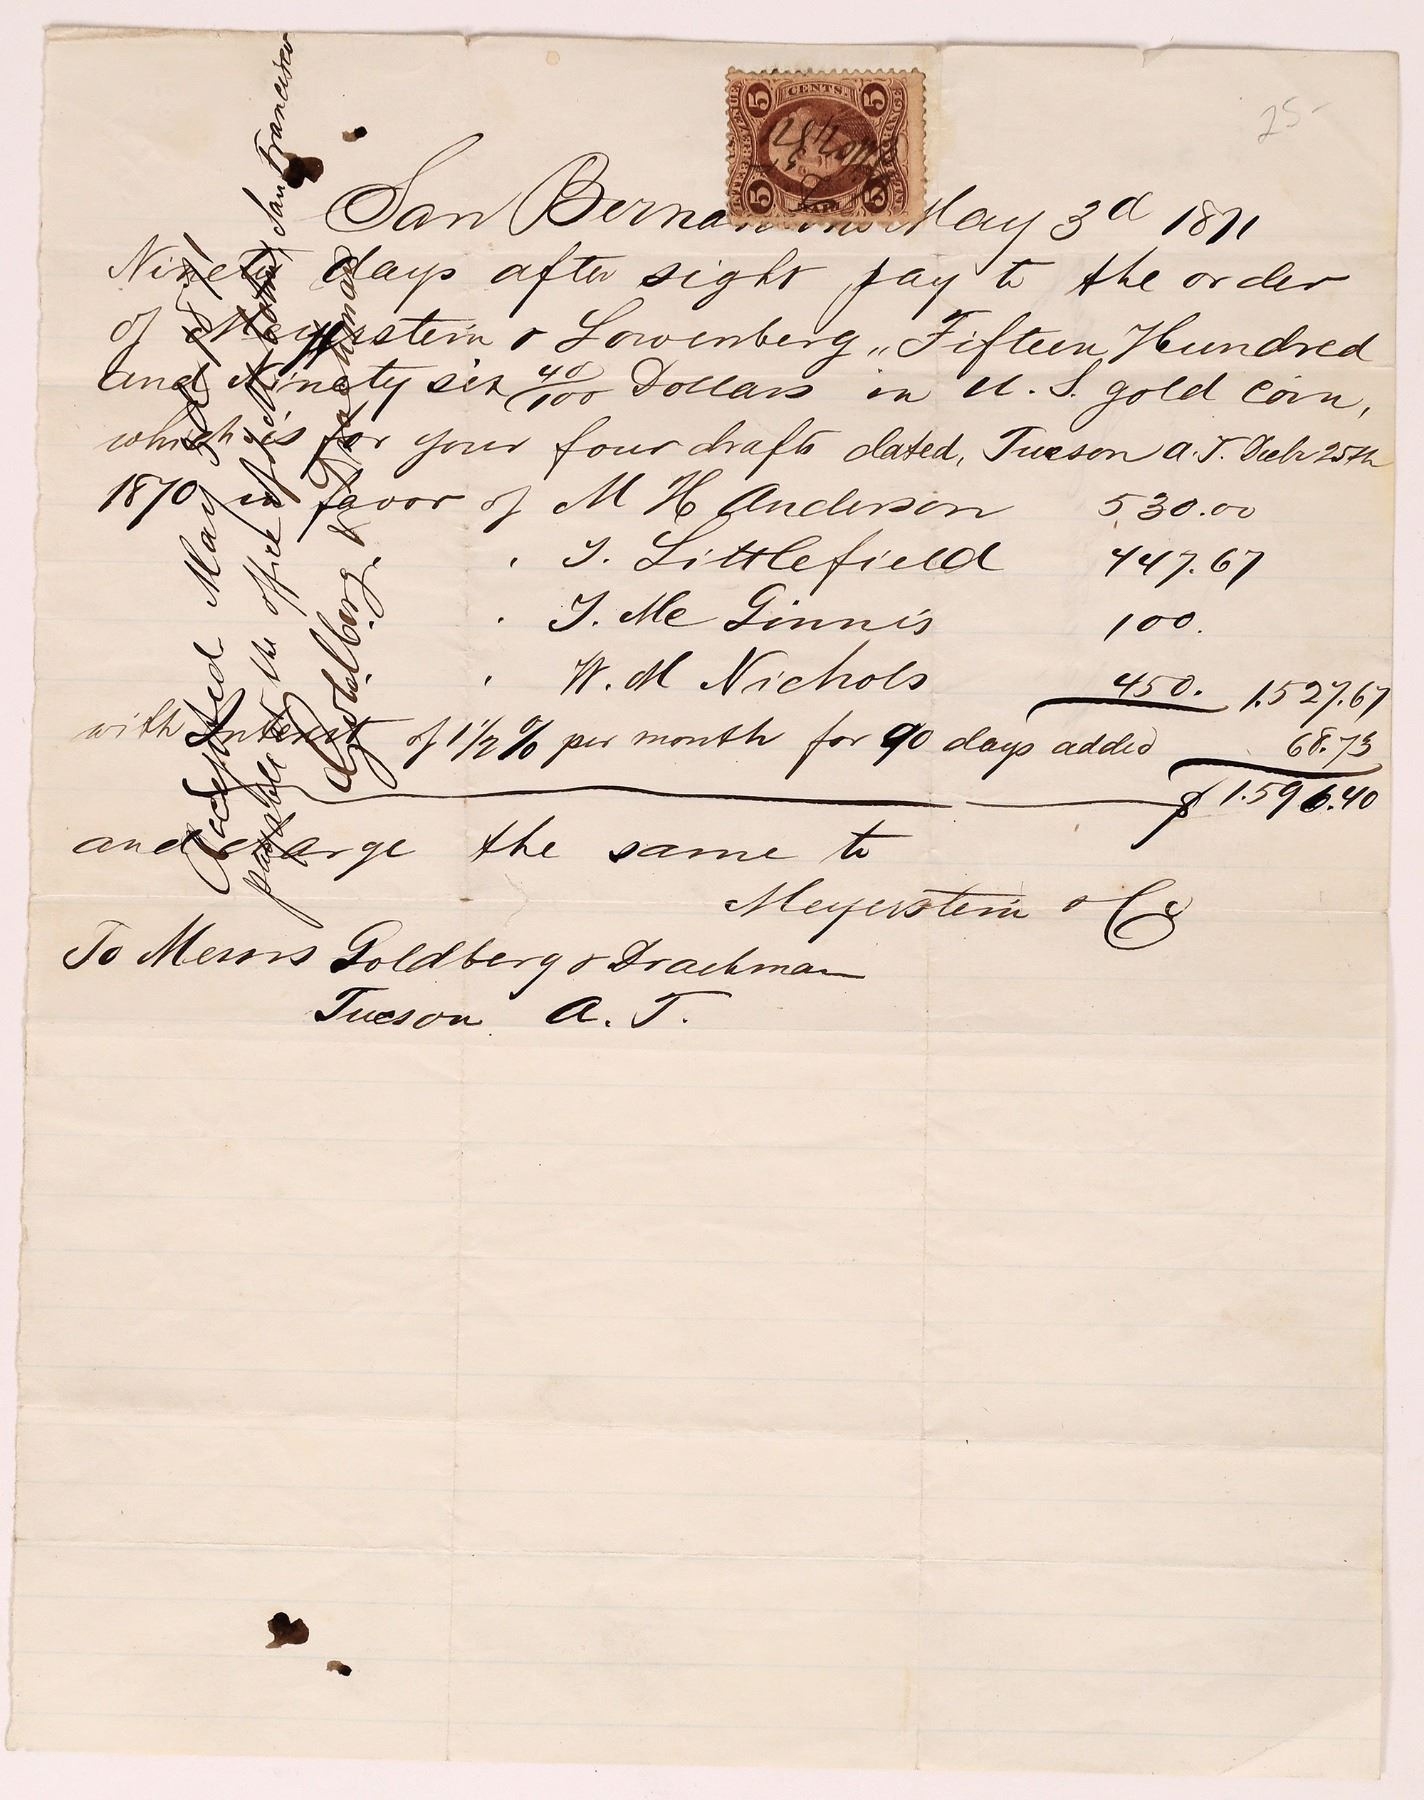 25-
5 CENTS 5
INTER. REVENUE
INL. EXCHANGE
5 5
San Bernardino May 3d 1871
Ninety days after sight pay to the order
of Meyerstein & Lowenberg „ Fifteen Hundred
and Ninety six 40/100 Dollars in U. S. gold coin,
which is for your four drafts dated, Tucson A. T. Decbr 25th
1870 in favor of M H Anderson 530.00
" T. Littlefield 447.67
" T. Mc Ginnis 100.
" W. M Nichols 450. 1.527.67
with Interest of 1 1/2 % per month for 90 days added 68.73
$ 1.596.40
and charge the same to
Meyerstein & Co
To Messrs Goldberg & Drachman
Tucson A. T.
Accepted May 3d 1871
payable at the office of San Francisco
Goldberg & Drachman